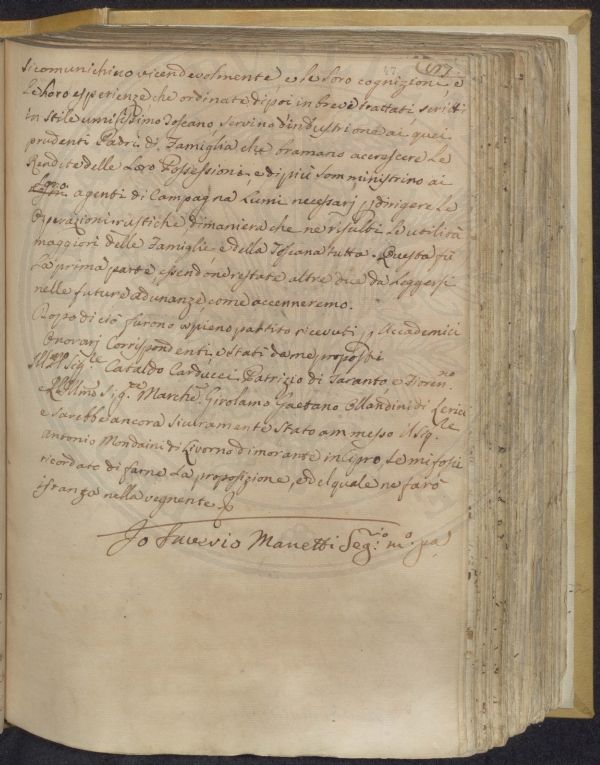 si comunichino vicendevolmente e le loro cognizioni, e
le loro esperienze che ordinate di poi in brevi trattati scritti
in stile umilissimo Toscano servino d'industriona ai quei
prudenti Padri di Famiglia che bramano accrescere le
Rendite delle Loro Possessioni, e di più somministrino ai
loro agenti di Campagna Lumi necessarj p dirigere le
Operazioni rustiche di maniera che ne risulti le utilità
maggiori delle Famiglie, e della Toscana tutta. Questa fù
la prima parte, essendone restate altre due da leggersi
nelle future adunanze come accenneremo.
Dopo di ciò furono a pieno partito ricevuti p Accademici
Onorarj Corrispondenti e stati da me proposti
Sig.re Cataldo Carducci Patrizio di Taranto e Fioren.no
Illmo Sig.re Marche. Girolamo Gaetano Ollandini di Lerici
e sarebbe ancora sicuramente stato ammesso il Sig.re
Antonio Mondaini di Livorno dimorante in Cipro, se mi fosse
ricordato di farne la proposizione, e del quale ne farò
istanza nella vegnente
Io Saverio Manetti Seg.rio m.o pa